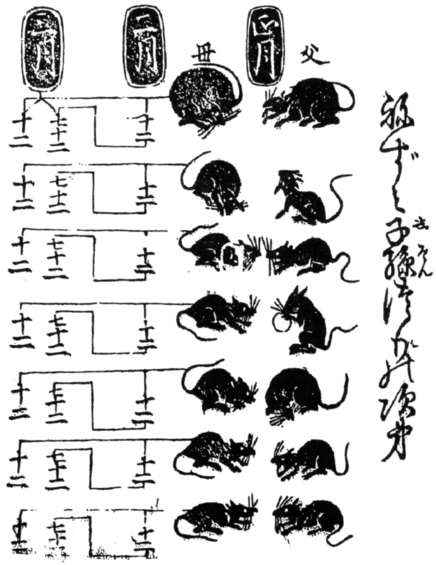 ねずミ子孫
次第
父
正月
母
二月
三月
十二
七十二
十二
十二
七十二
十二
十二
七十二
十二
十二
七十二
十二
十二
七十二
十二
十二
七十二
十二
十二
七十二
十二